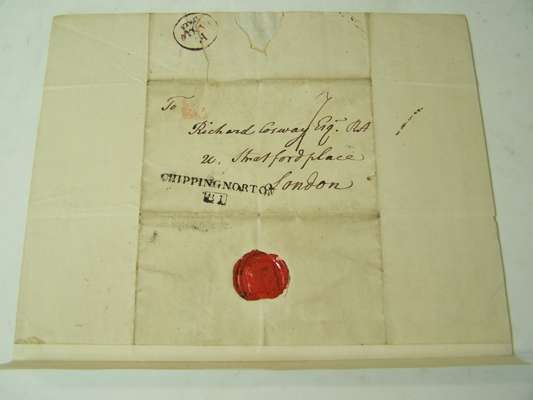 To
Richard Cosway Esqr. RA
20. Stratford place
London
CHIPPINGNORTON